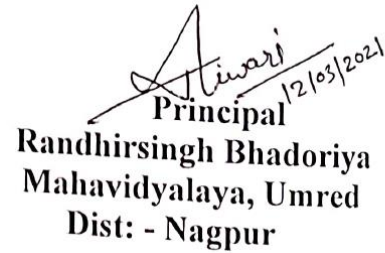 Tiwari
12/03/2021
Principal
Randhirsingh Bhadoriya
Mahavidyalaya, Umred
Dist: - Nagpur